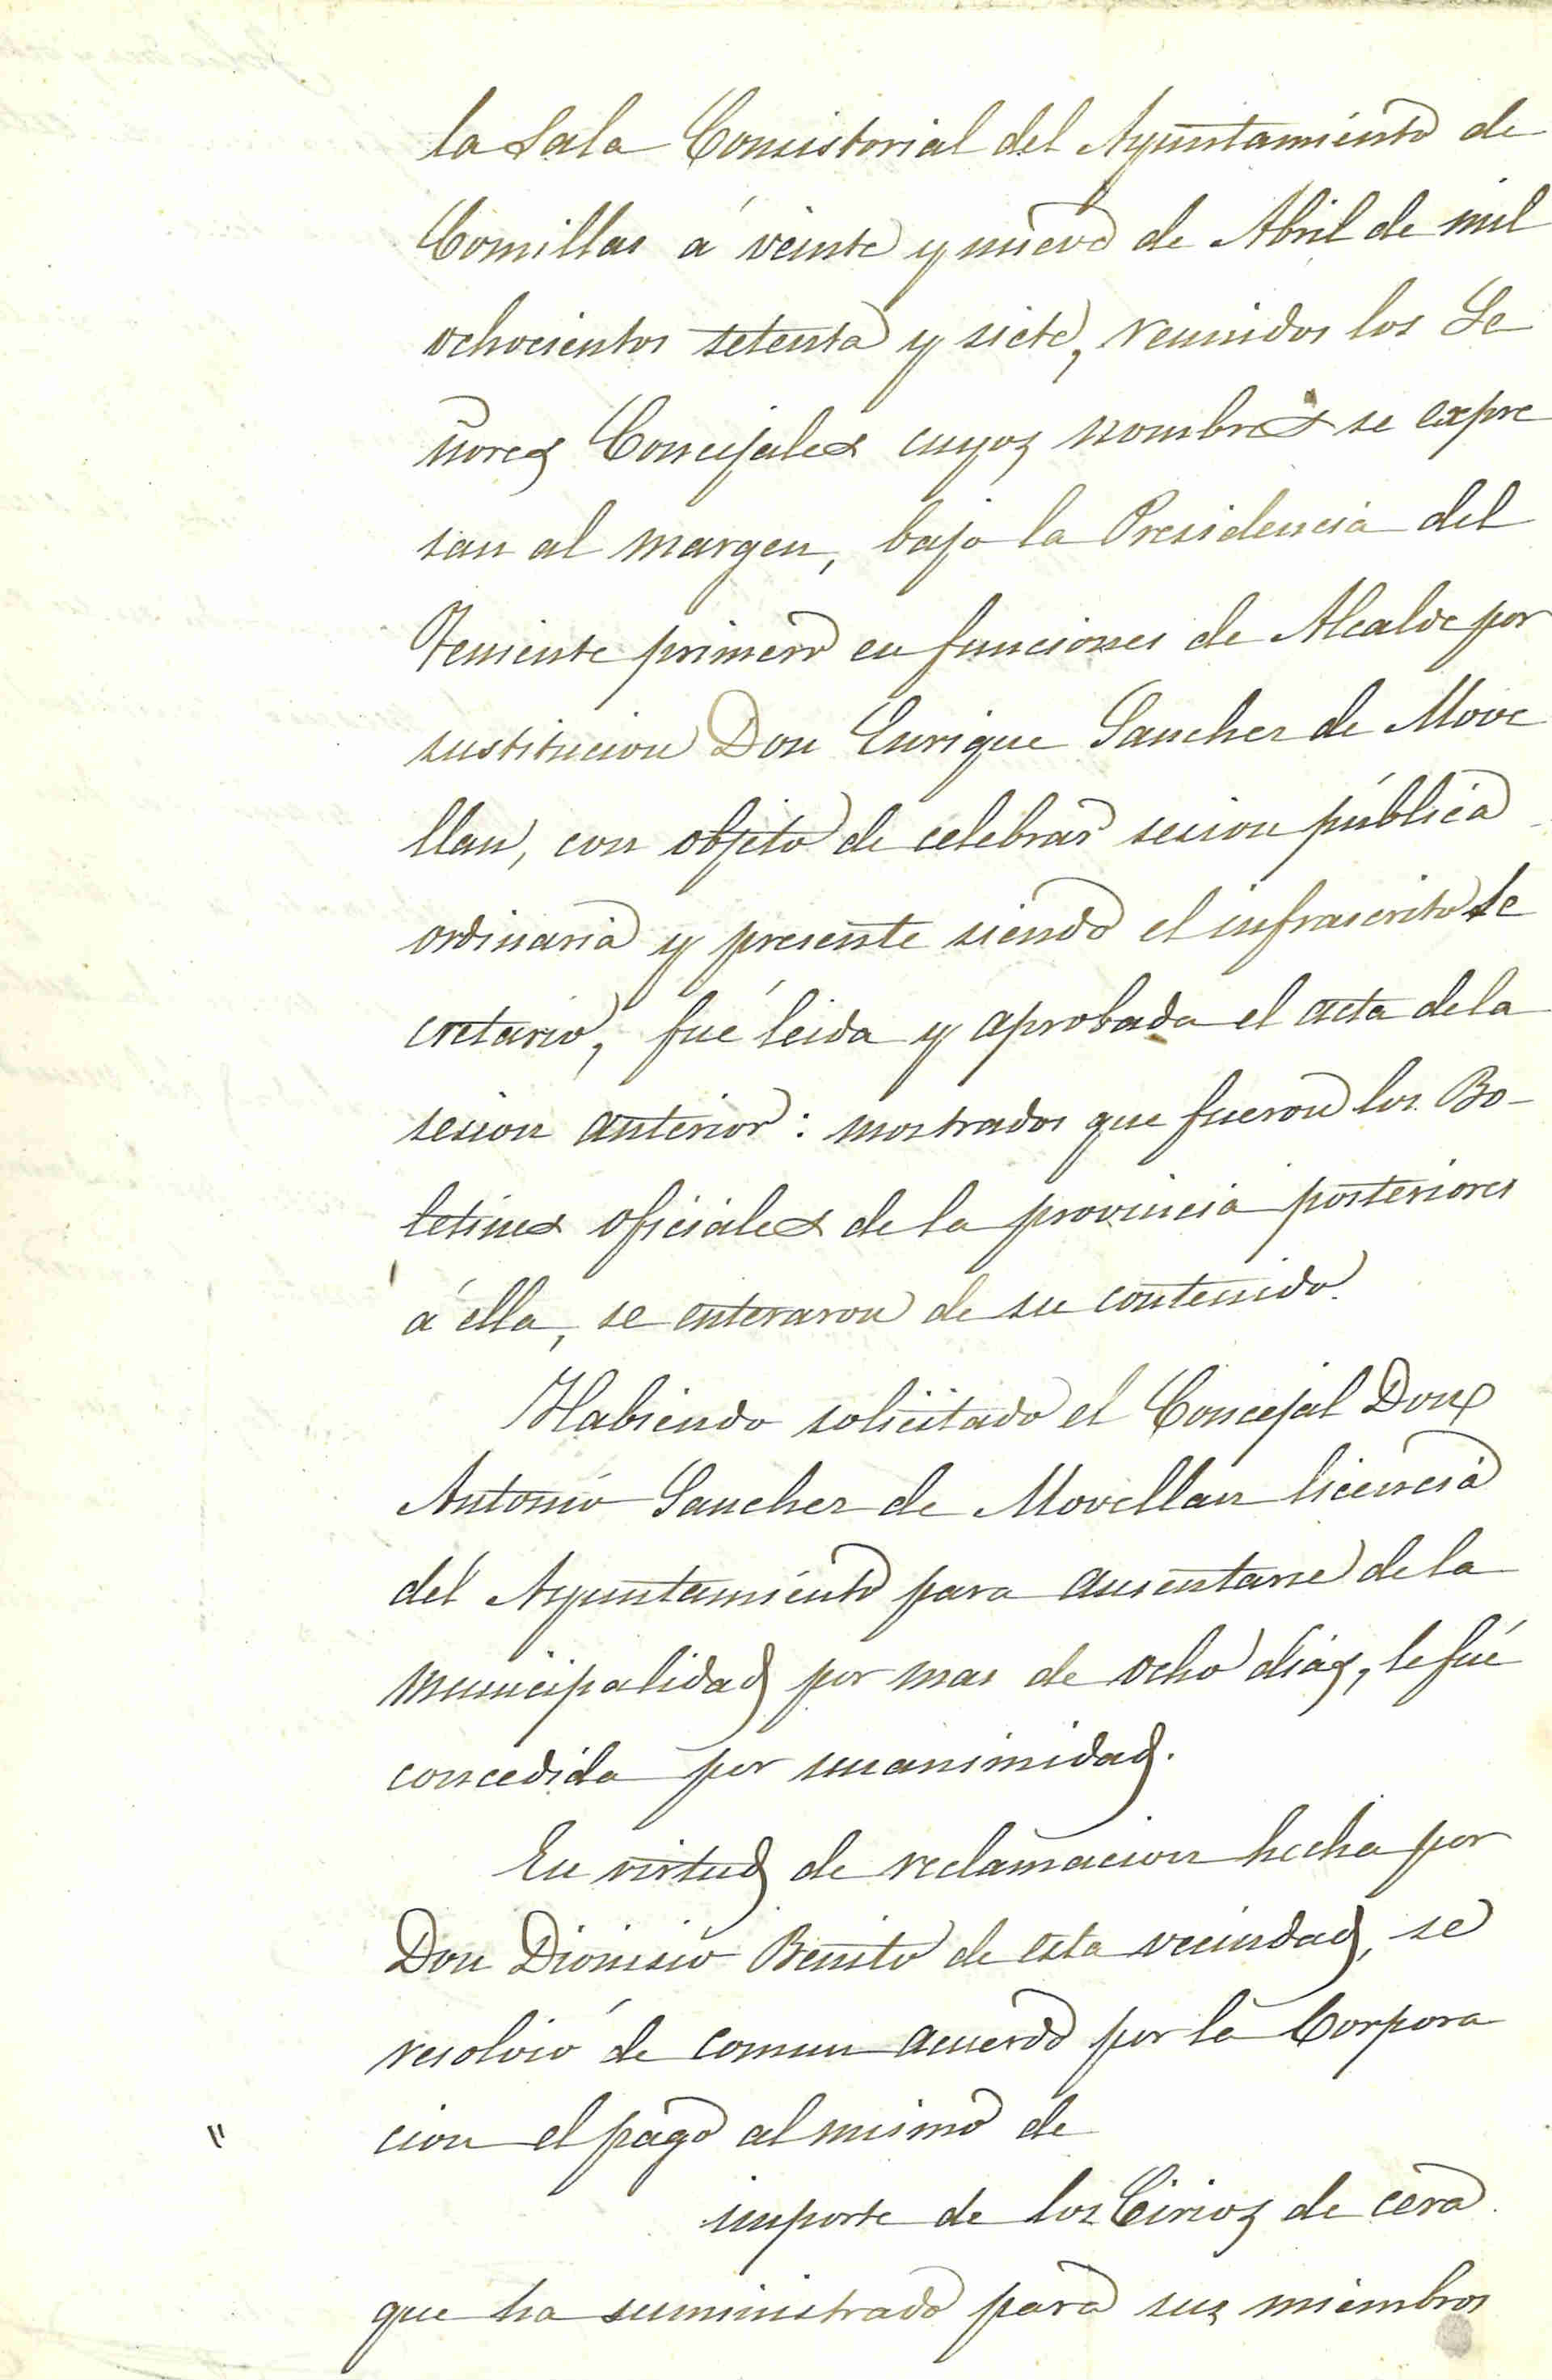 la Sala Consistorial del Ayuntamiento de
Comillas á veinte y nueve de Abril de mil
ochocientos setenta y siete, reunidos los Se
ñores Concejales cuyos nombres se expre
san al margen, bajo la Presidencia del
Teniente primero en funciones de Alcalde por
sustitucion Don Enrique Sanchez de Move
llan, con objeto de celebrar sesion pública
ordinaria y presente siendo el infrascrito Se
cretario, fué leida y aprobada el acta de la
sesion anterior: mostrados que fueron los Bo-
letines oficiales de la provincia posteriores
á ella, se enteraron de su contenido.
Habiendo solicitado el Concejal Don
Antonio Sanchez de Movellan licencia
del Ayuntamiento para ausentarse de la
municipalidad por mas de ocho dias, le fué
concedida por unanimidad.
En virtud de reclamacion hecha por
Don Dionisio Benito de esta vecindad, se
resolvió de comun acuerdo por la Corpora
" cion el pago al mismo de
importe de los Cirios de cera
que ha suministrado para sus miembros